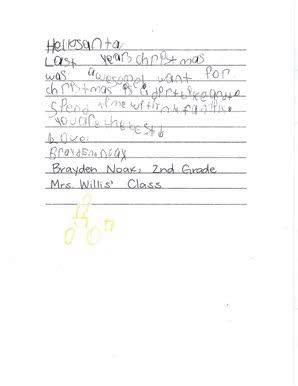 Hellosanta
Last years christmas
was awesome I want for
christmas is a dertbike and to
spend time with my family.
you are the best!
Love:
Brayden noak
Brayden Noak, 2nd Grade
Mrs. Willis' Class